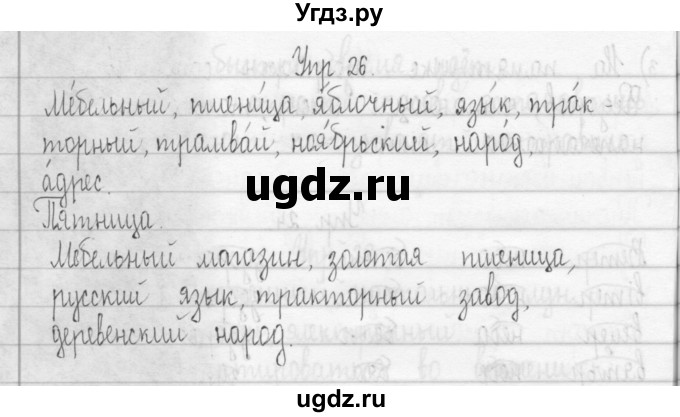 Угдз.ру
Упр 26.
Ме́бельный, пшени́ца, я́блочный, язы́к, тра́к-
торный, трамва́й, ноя́брьский, наро́д,
а́дрес.
ugdz.ru
Пятница.
Мебельный магазин, золотая пшеница,
русский язык, тракторный завод,
деревенский народ.
ugdz.ru